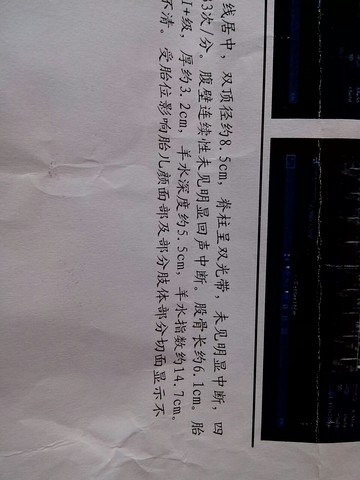 线居中，双顶径约8.5cm，脊柱呈双光带，未见明显中断，四
33次/分。腹壁连续性未见明显回声中断。股骨长约6.1cm。胎
I+级，厚约3.2cm，羊水深度约5.5cm，羊水指数约14.7cm。
不清。受胎位影响胎儿颜面部及部分肢体部分切面显示不